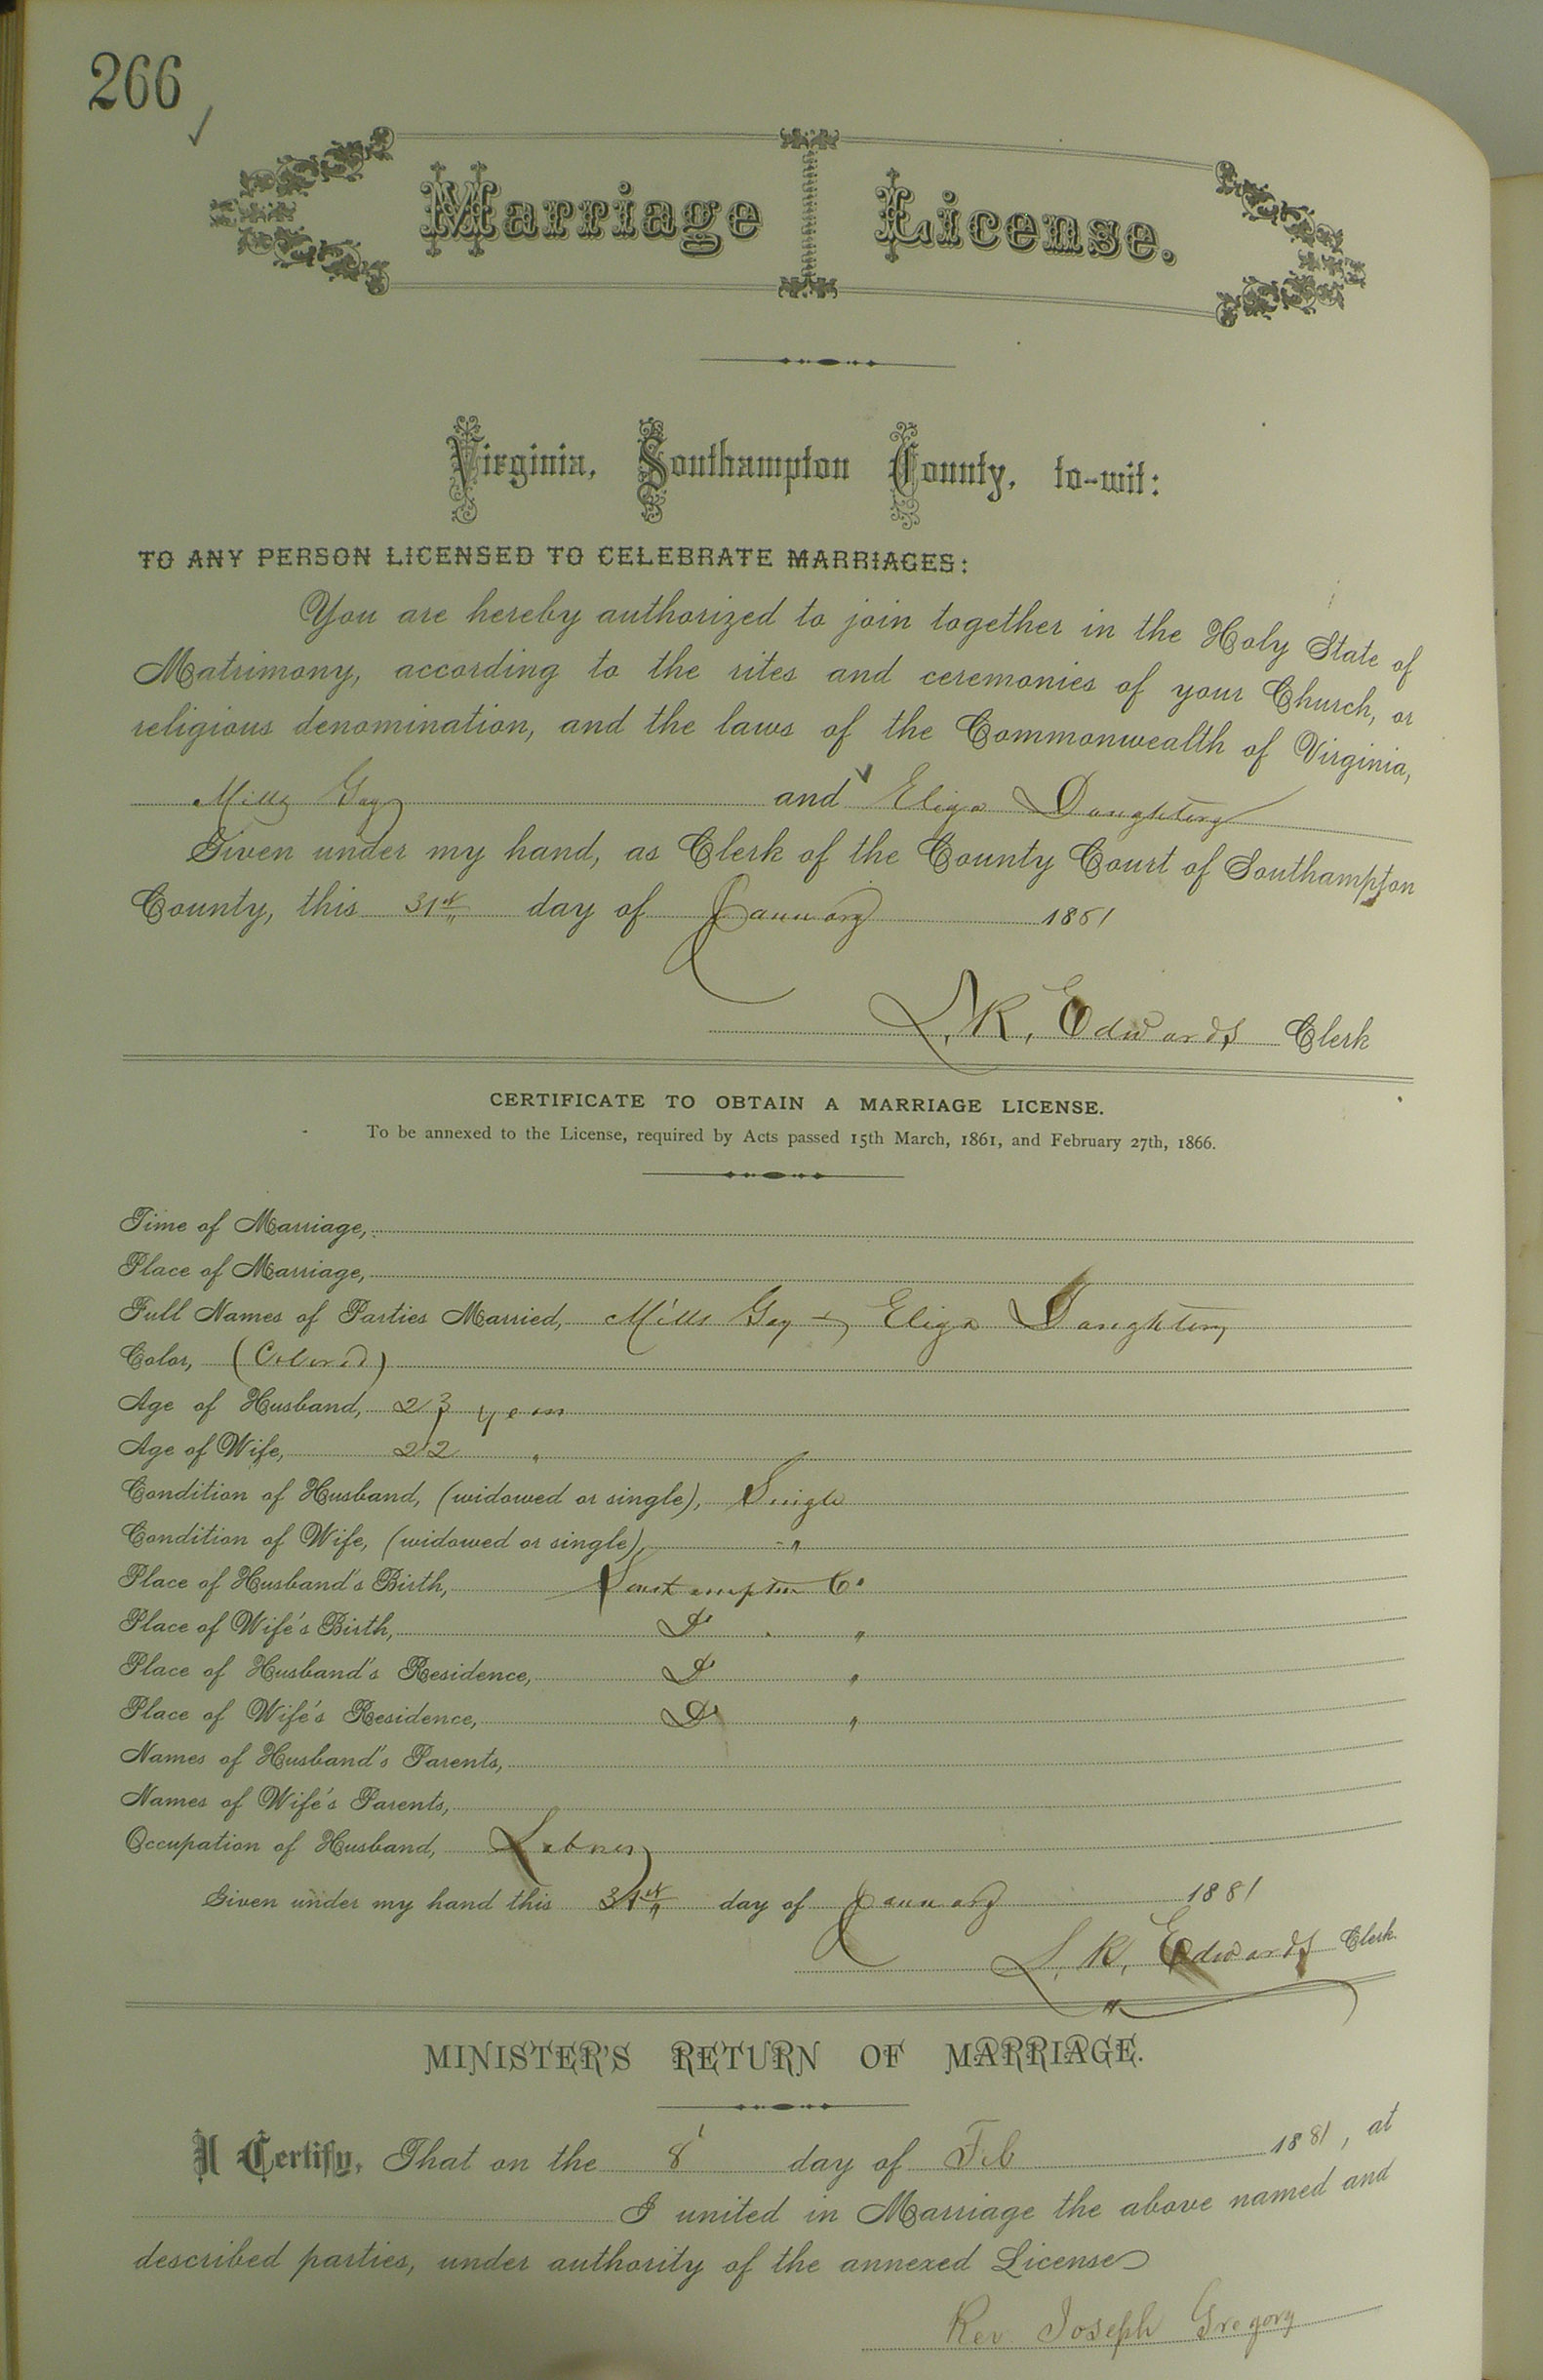 266
Marriage License.
Virginia, Southampton County, to-wit:
TO ANY PERSON LICENSED TO CELEBRATE MARRIAGES:
You are hereby authorized to join together in the Holy State of
Matrimony, according to the rites and ceremonies of your Church, or
religious denomination, and the laws of the Commonwealth of Virginia,
Mills Gay and Eliza Daughtery
Given under my hand, as Clerk of the County Court of Southampton
County, this 31st day of January 1881
L. R. Edwards Clerk
CERTIFICATE TO OBTAIN A MARRIAGE LICENSE.
To be annexed to the License, required by Acts passed 15th March, 1861, and February 27th, 1866.
Time of Marriage,
Place of Marriage,
Full Names of Parties Married, Mills Gay & Eliza Daughtery
Color, (Colored)
Age of Husband, 23 years
Age of Wife, 22 "
Condition of Husband, (widowed or single), Single
Condition of Wife, (widowed or single), "
Place of Husband's Birth, Southampton Co
Place of Wife's Birth, Do "
Place of Husband's Residence, Do "
Place of Wife's Residence, Do "
Names of Husband's Parents,
Names of Wife's Parents,
Occupation of Husband, Laborer
Given under my hand this 31st day of January 1881
L. R. Edwards Clerk.
MINISTER'S RETURN OF MARRIAGE.
I Certify, That on the 8 day of Feb 1881, at
I united in Marriage the above named and
described parties, under authority of the annexed License
Rev Joseph Gregory